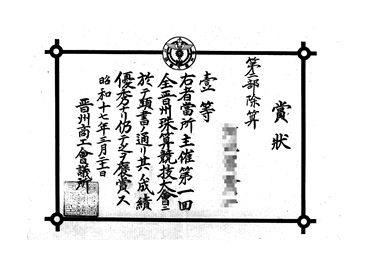 賞状
第五部除算
壹等
右者當所主催第一回
全晋州珠算競技大會ニ
於テ頭書ノ通リ其ノ成績
優秀ナリ仍テ之ヲ褒賞ス
昭和十七年三月二十日
晋州商工會議所